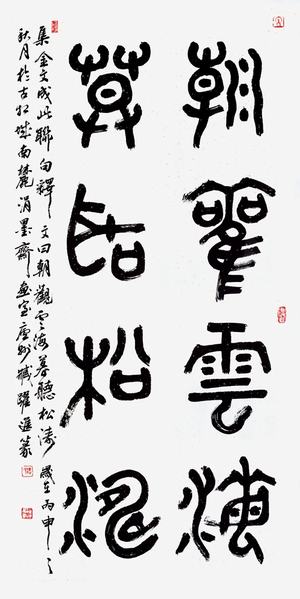 朝觀雲海
暮聽松濤
集金文成此聯句釋文曰朝觀雲海暮聽松濤歲在丙申之
秋月於古城南麓涓墨齋畫室臧躍進篆